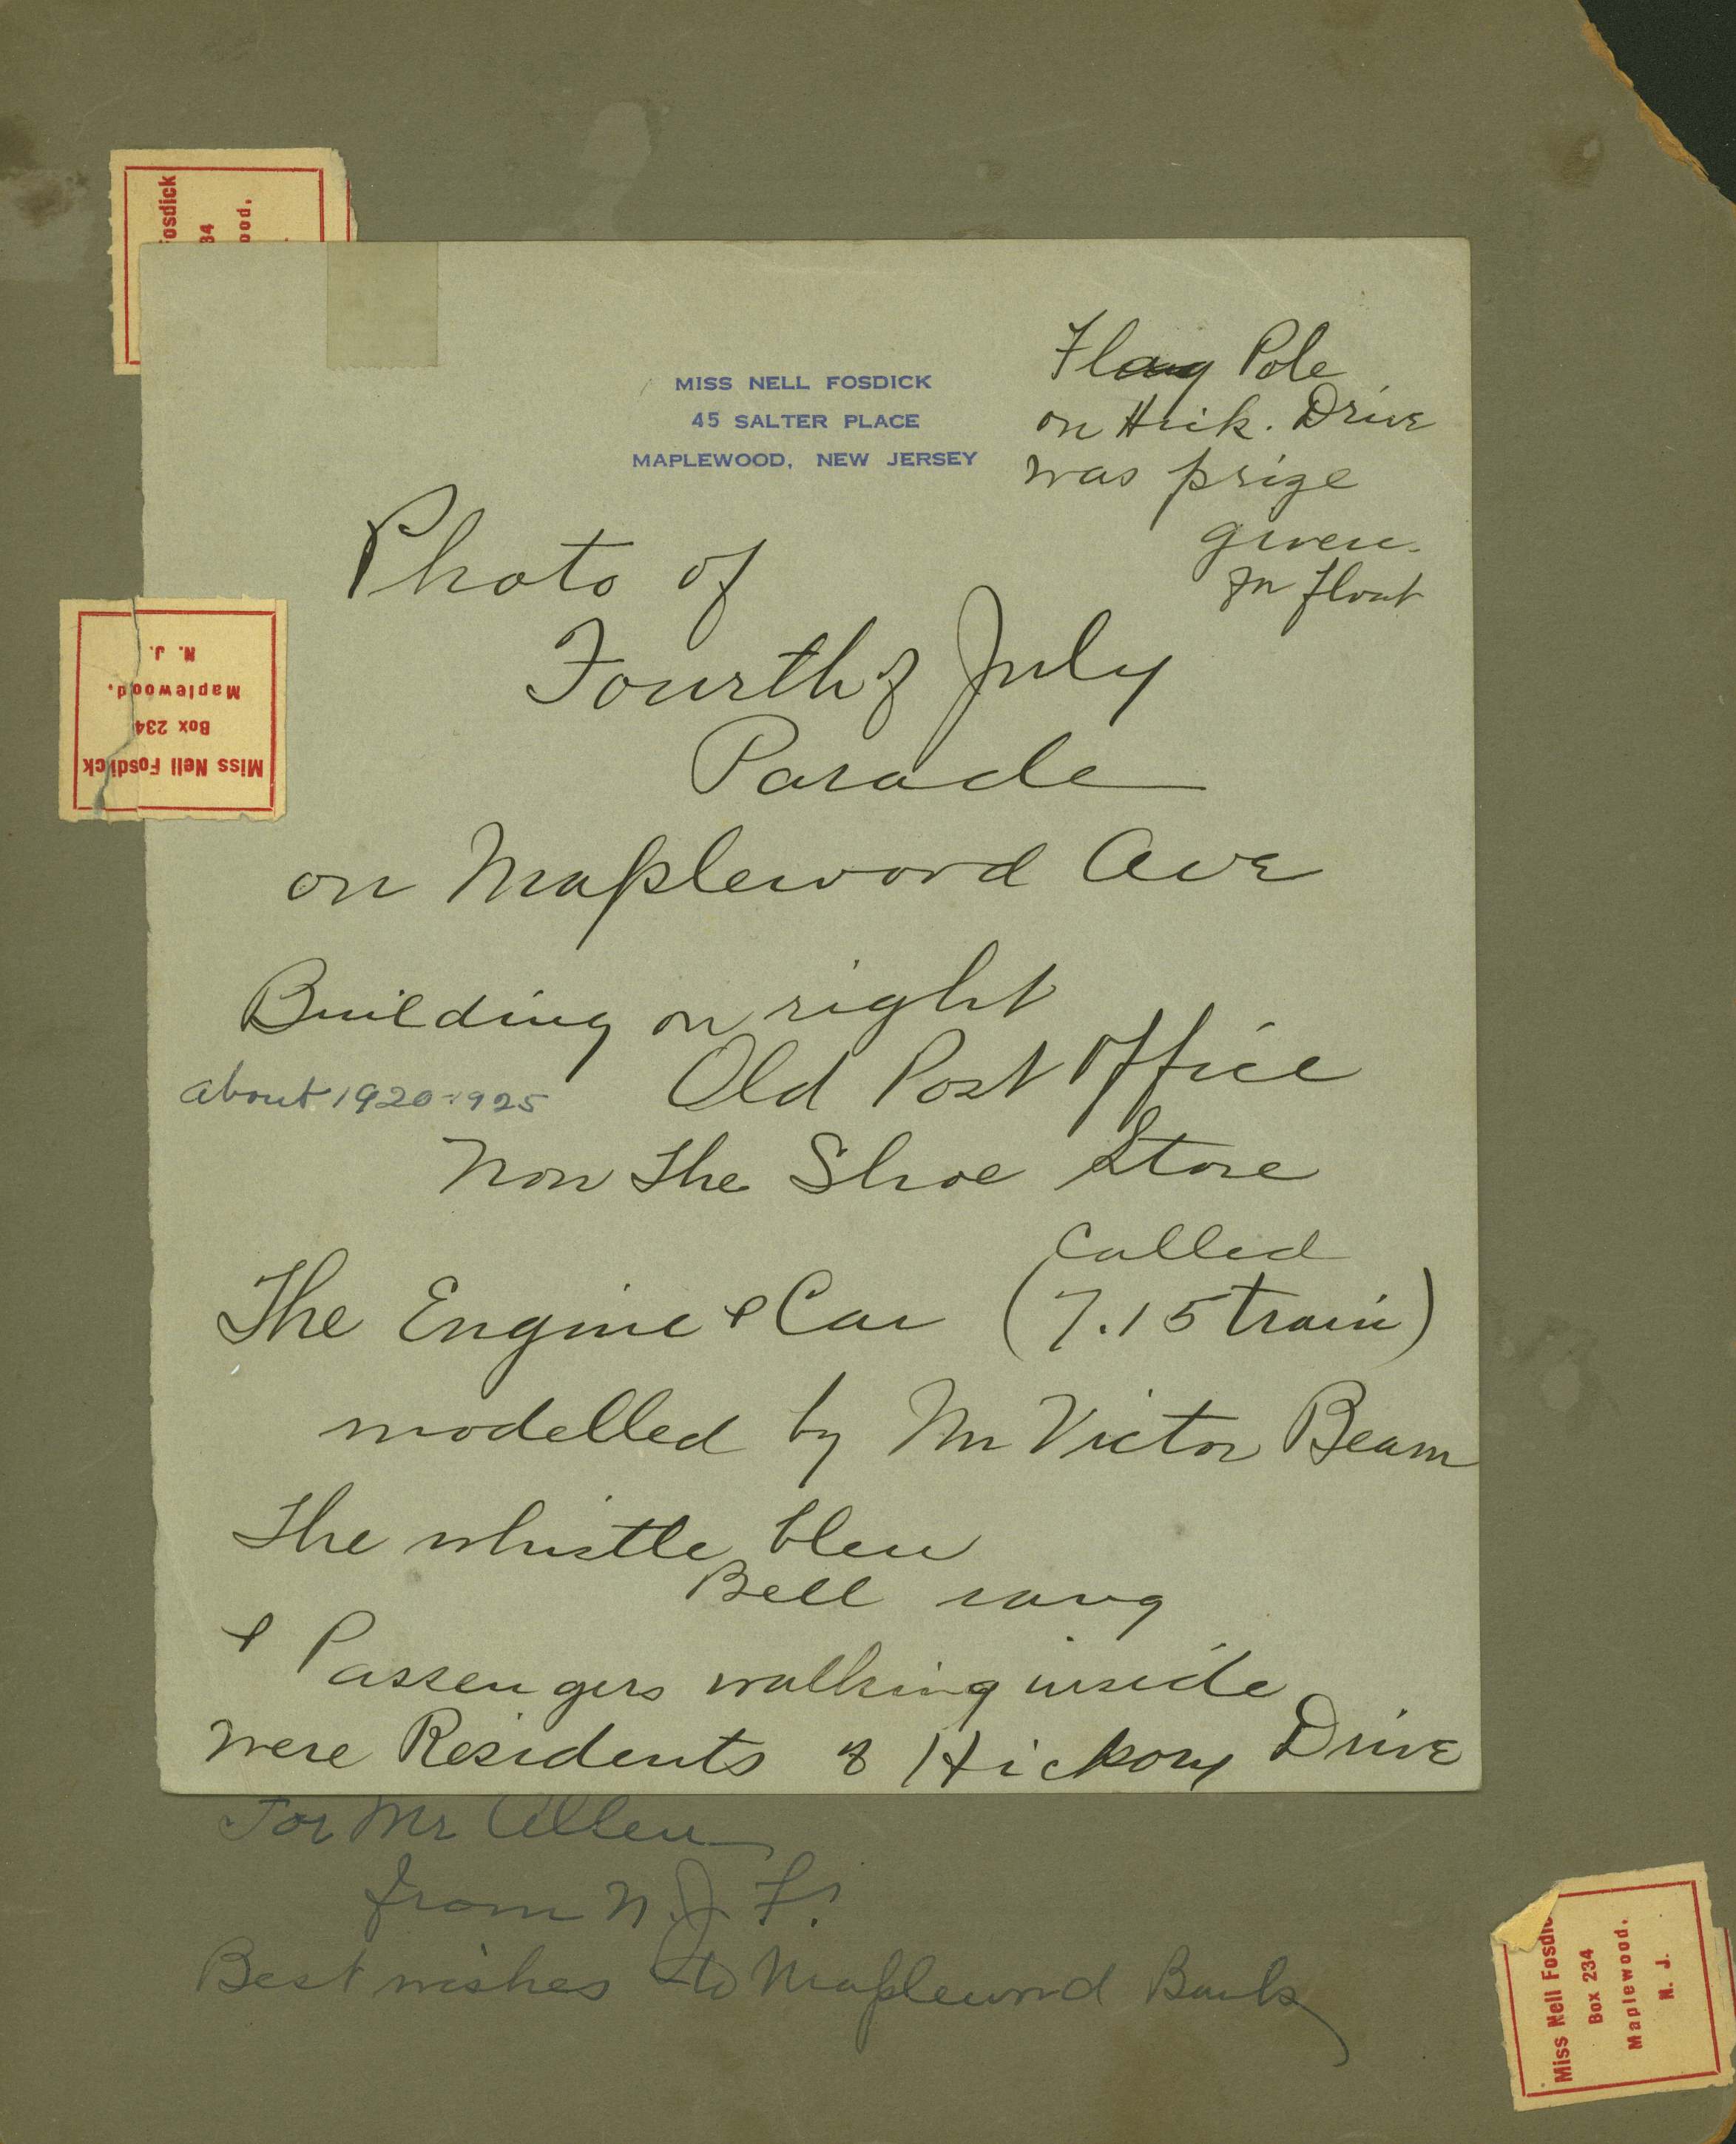 osdick
34
ood.
MISS NELL FOSDICK
45 SALTER PLACE
MAPLEWOOD, NEW JERSEY
Flag Pole
on Hick. Drive
was prize
given
for float
Photo of
Fourth of July
Parade
on Maplewood Ave
Miss Nell Fosdick
Box 234
Maplewood.
N. J.
Building on right
Old Post Office
about 1920-1925
Now the Shoe Store
Called
The Engine & Car (7.15 train)
modelled by Mr Victor Beam
The whistle blew
Bell rang
& Passengers walking inside
were Residents of Hickory Drive
For Mr Allen
from N.J.F.
Best wishes to Maplewood Bank
Miss Nell Fosdic
Box 234
Maplewood.
N. J.